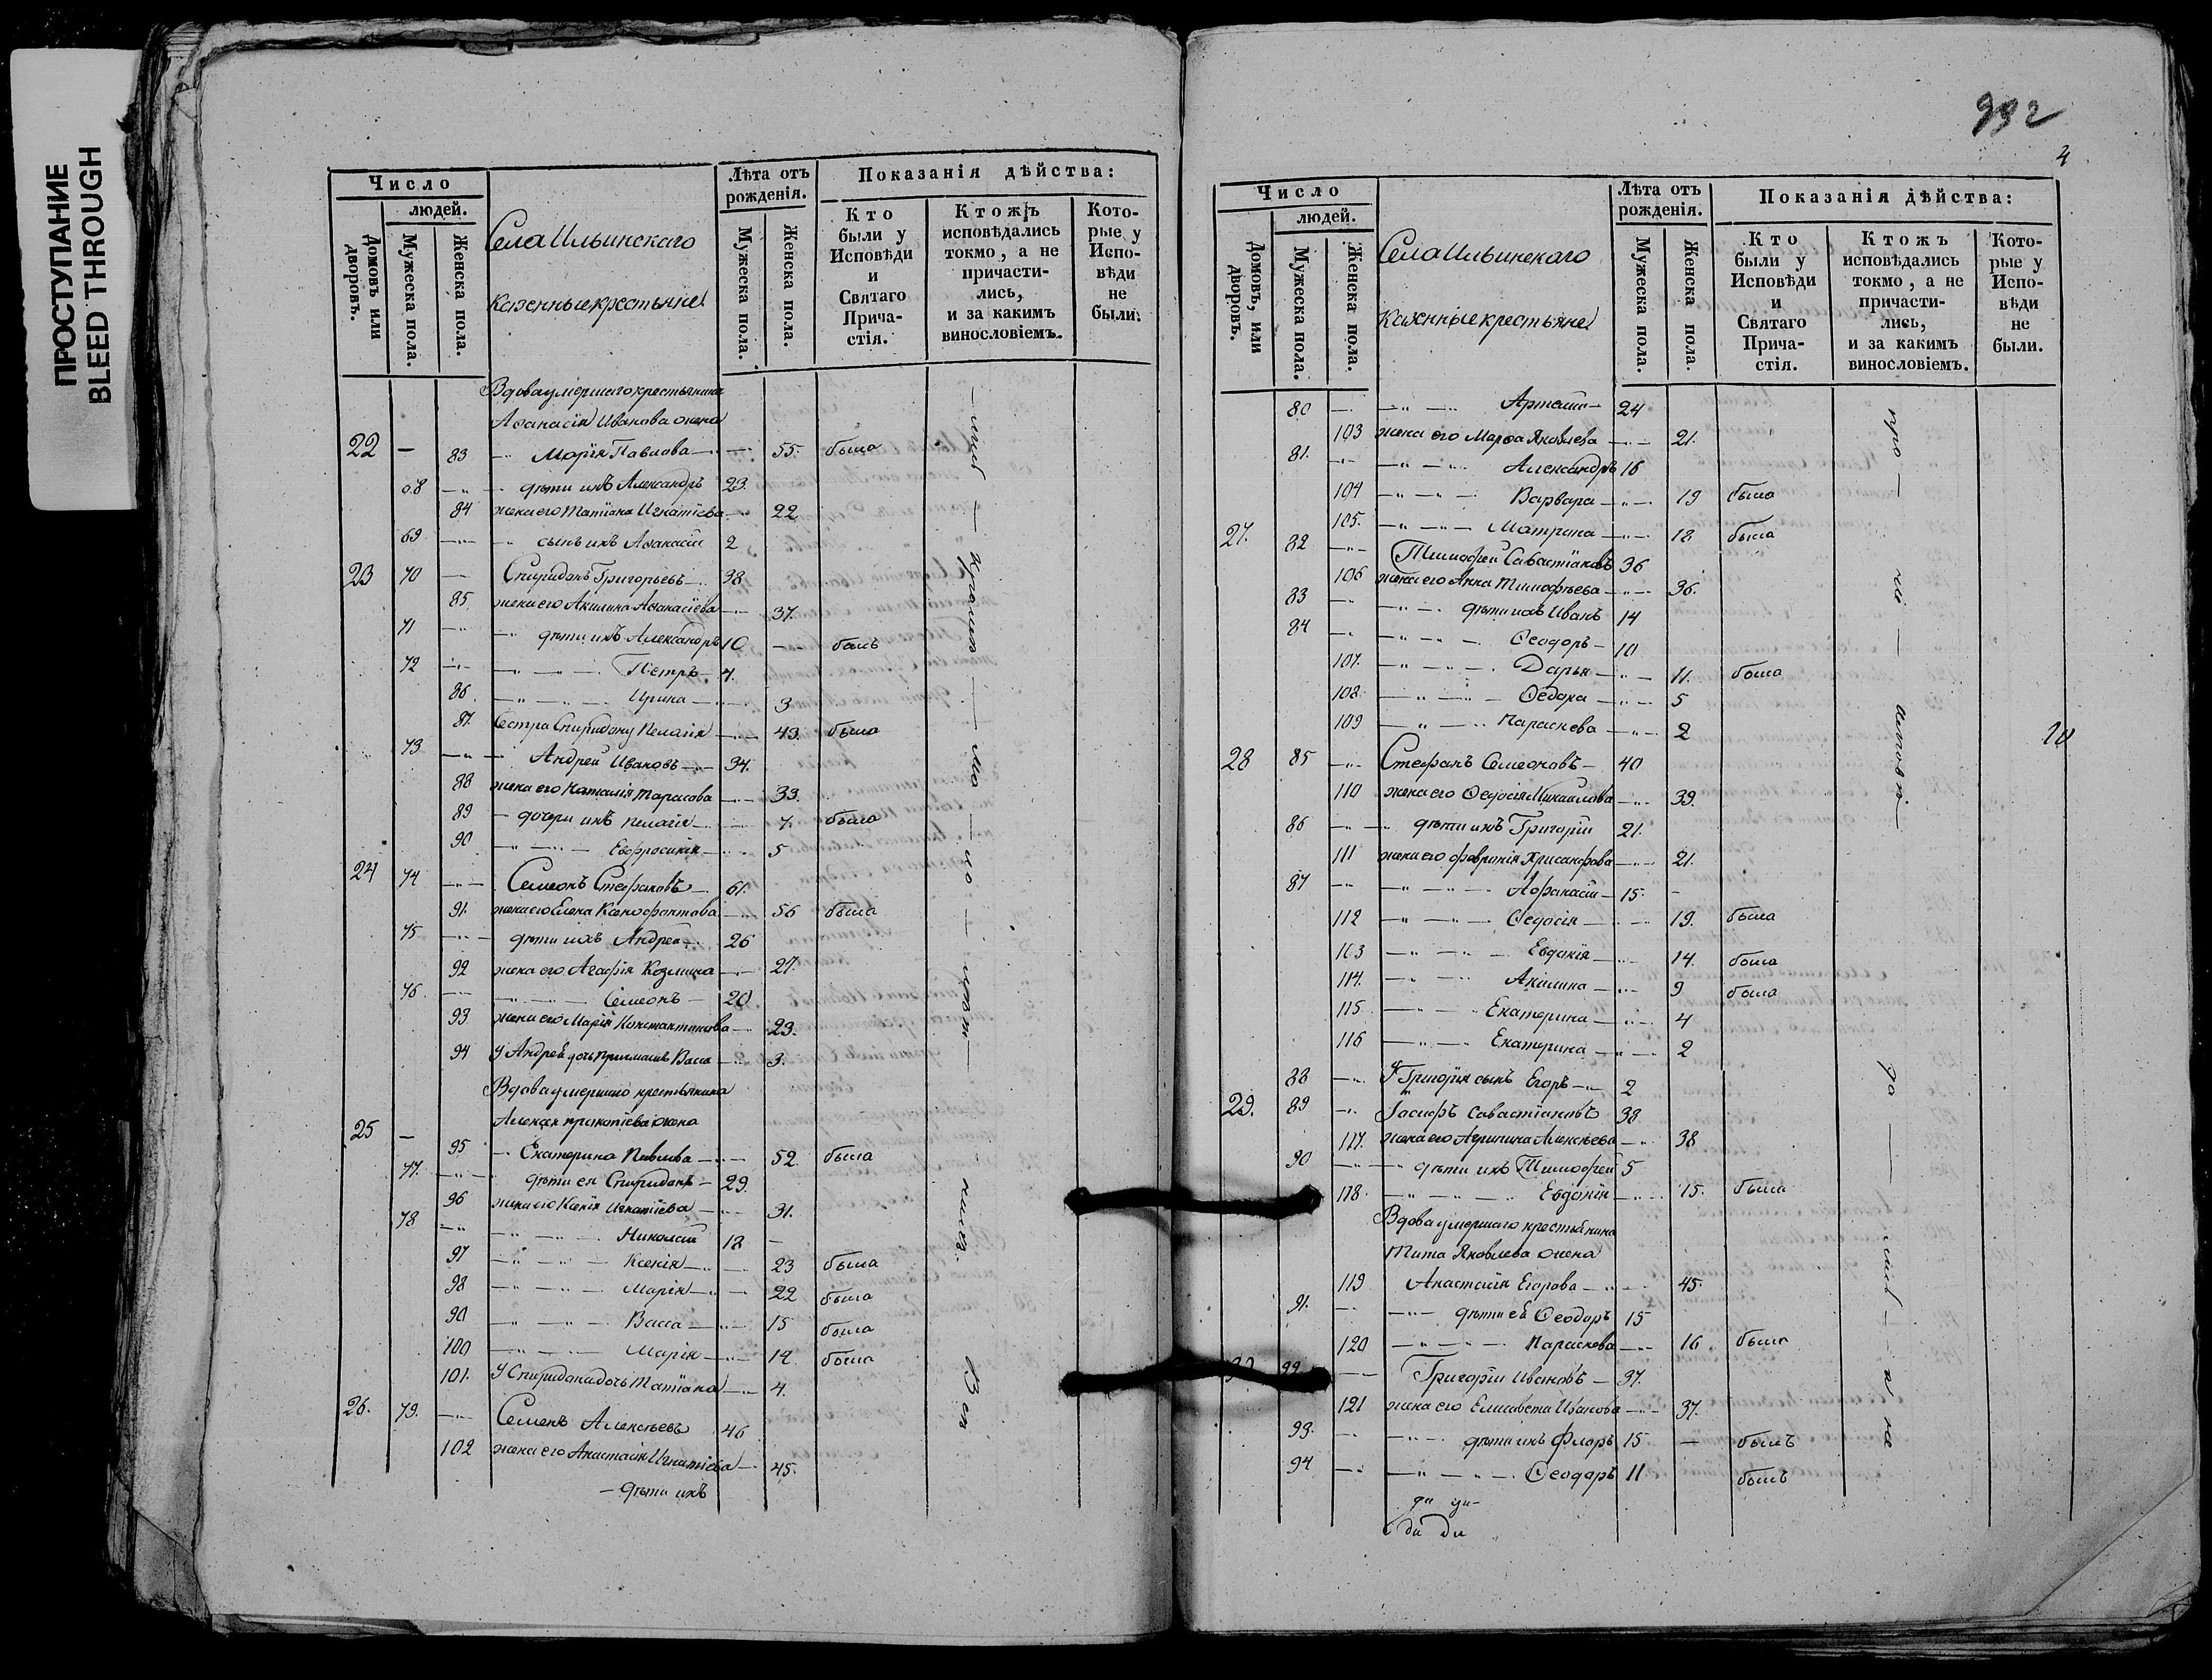 ПРОСТУПАНИЕ
BLEED THROUGH
Число
людей.
Домовъ или дворовъ.
Мужеска пола.
Женска пола.
Села Ильинскаго
Казенные крестьяне
Лѣта отъ рожденія.
Мужеска пола.
Женска пола.
Показанія дѣйства:
Кто были у Исповѣди и Святаго Прича-стія.
Ктожъ исповѣдались токмо, а не причасти-лись, и за какимъ винословіемъ.
Кото-рые у Испо-вѣди не были.
Вдова умершаго крестьянина
Аѳанасія Иванова жена
22 — 83 Марія Павлова 55. была
68 дѣти ихъ Александръ 23.
84 жена его Татіана Игнатіева 22
69 сынъ ихъ Аѳанасій 2
23 70 Спиридонъ Григорьевъ 38
85 жена его Акилина Аѳанасіева 37.
71 дѣти ихъ Александръ 10 былъ
72 Петръ 4.
86 Ирина 3
87. Сестра Спиридону Пелагія 43. была
73 Андрей Ивановъ 34.
88 жена его Наталія Тарасова 33.
89 дочери ихъ Пелагія 7 была
90 Евфросинія 5
24 74 Семеонъ Стефановъ 61.
91. жена его Елена Ксенофонтова 56 была
75 дѣти ихъ Андрей 26
92 жена его Агафія Козмина 27.
76 Семеонъ 20
93 жена его Марія Константинова 23.
94 У Андрея дочь Васса 3.
Вдова умершаго крестьянина
жена
25 —
95 Екатерина Павлова 52. была
77. дѣти ея Спиридонъ 29.
96 жена его Ксенія Игнатіева 31.
78 Николай 12
97 Ксенія 23 была
98 Марія 22 была
90 Васса 15 была
100 Марія 12. была
101. У Спиридона дочь Татіана 4.
26. 79. Семенъ Алексѣевъ 46
102 жена его Анастасія Игнатіева 45.
дѣти ихъ
4
Число
людей.
Домовъ, или дворовъ.
Мужеска пола.
Женска пола.
Села Ильинскаго
Казенные крестьяне
Лѣта отъ рожденія.
Мужеска пола.
Женска пола.
Показанія дѣйства:
Кто были у Исповѣди и Святаго Прича-стія.
Ктожъ исповѣдались токмо, а не причасти-лись, и за какимъ винословіемъ.
Кото-рые у Испо-вѣди не были.
80 24
103 жена его Марфа Яковлева 21.
81. Александръ 16
104 Варвара 19 была
105. Матрина 18 была
27. 82 Тимофей Савастіановъ 36
106 жена его Анна Тимофѣева 36.
83 дѣти ихъ Иванъ 14
84 Ѳеодоръ 10
107. Дарья 11. была
108 Ѳедора 5
109 Параскева 2
28 85 Стефанъ Семеоновъ 40
110 жена его Ѳедосія Михаилова 39.
86 дѣти ихъ Григорій 21.
111 жена его Февронія Хрисанфова 21.
87 Афанасій 15.
112 Ѳедосія 19. была
113 Евдокія 14. была
114. Акилина 9 была
115 Екатерина 4
116 Екатерина 2
88 У Григорія сынъ Егоръ 2
29. 89 Іосифъ Савастіановъ 38
117. жена его Агрипина Алексѣева 38
90 дѣти ихъ Тимофей 5
118. Евдокія 15. была
Вдова умершаго крестьянина
Тита Яковлева жена
119 Анастасія Егорова 45.
91. дѣти ея Ѳеодоръ 15
120 Параскева 16 была
Григорій Ивановъ 37.
121 жена его Елисавета Иванова 37.
93. дѣти ихъ Флоръ 15 былъ
94 Ѳеодоръ 11 былъ